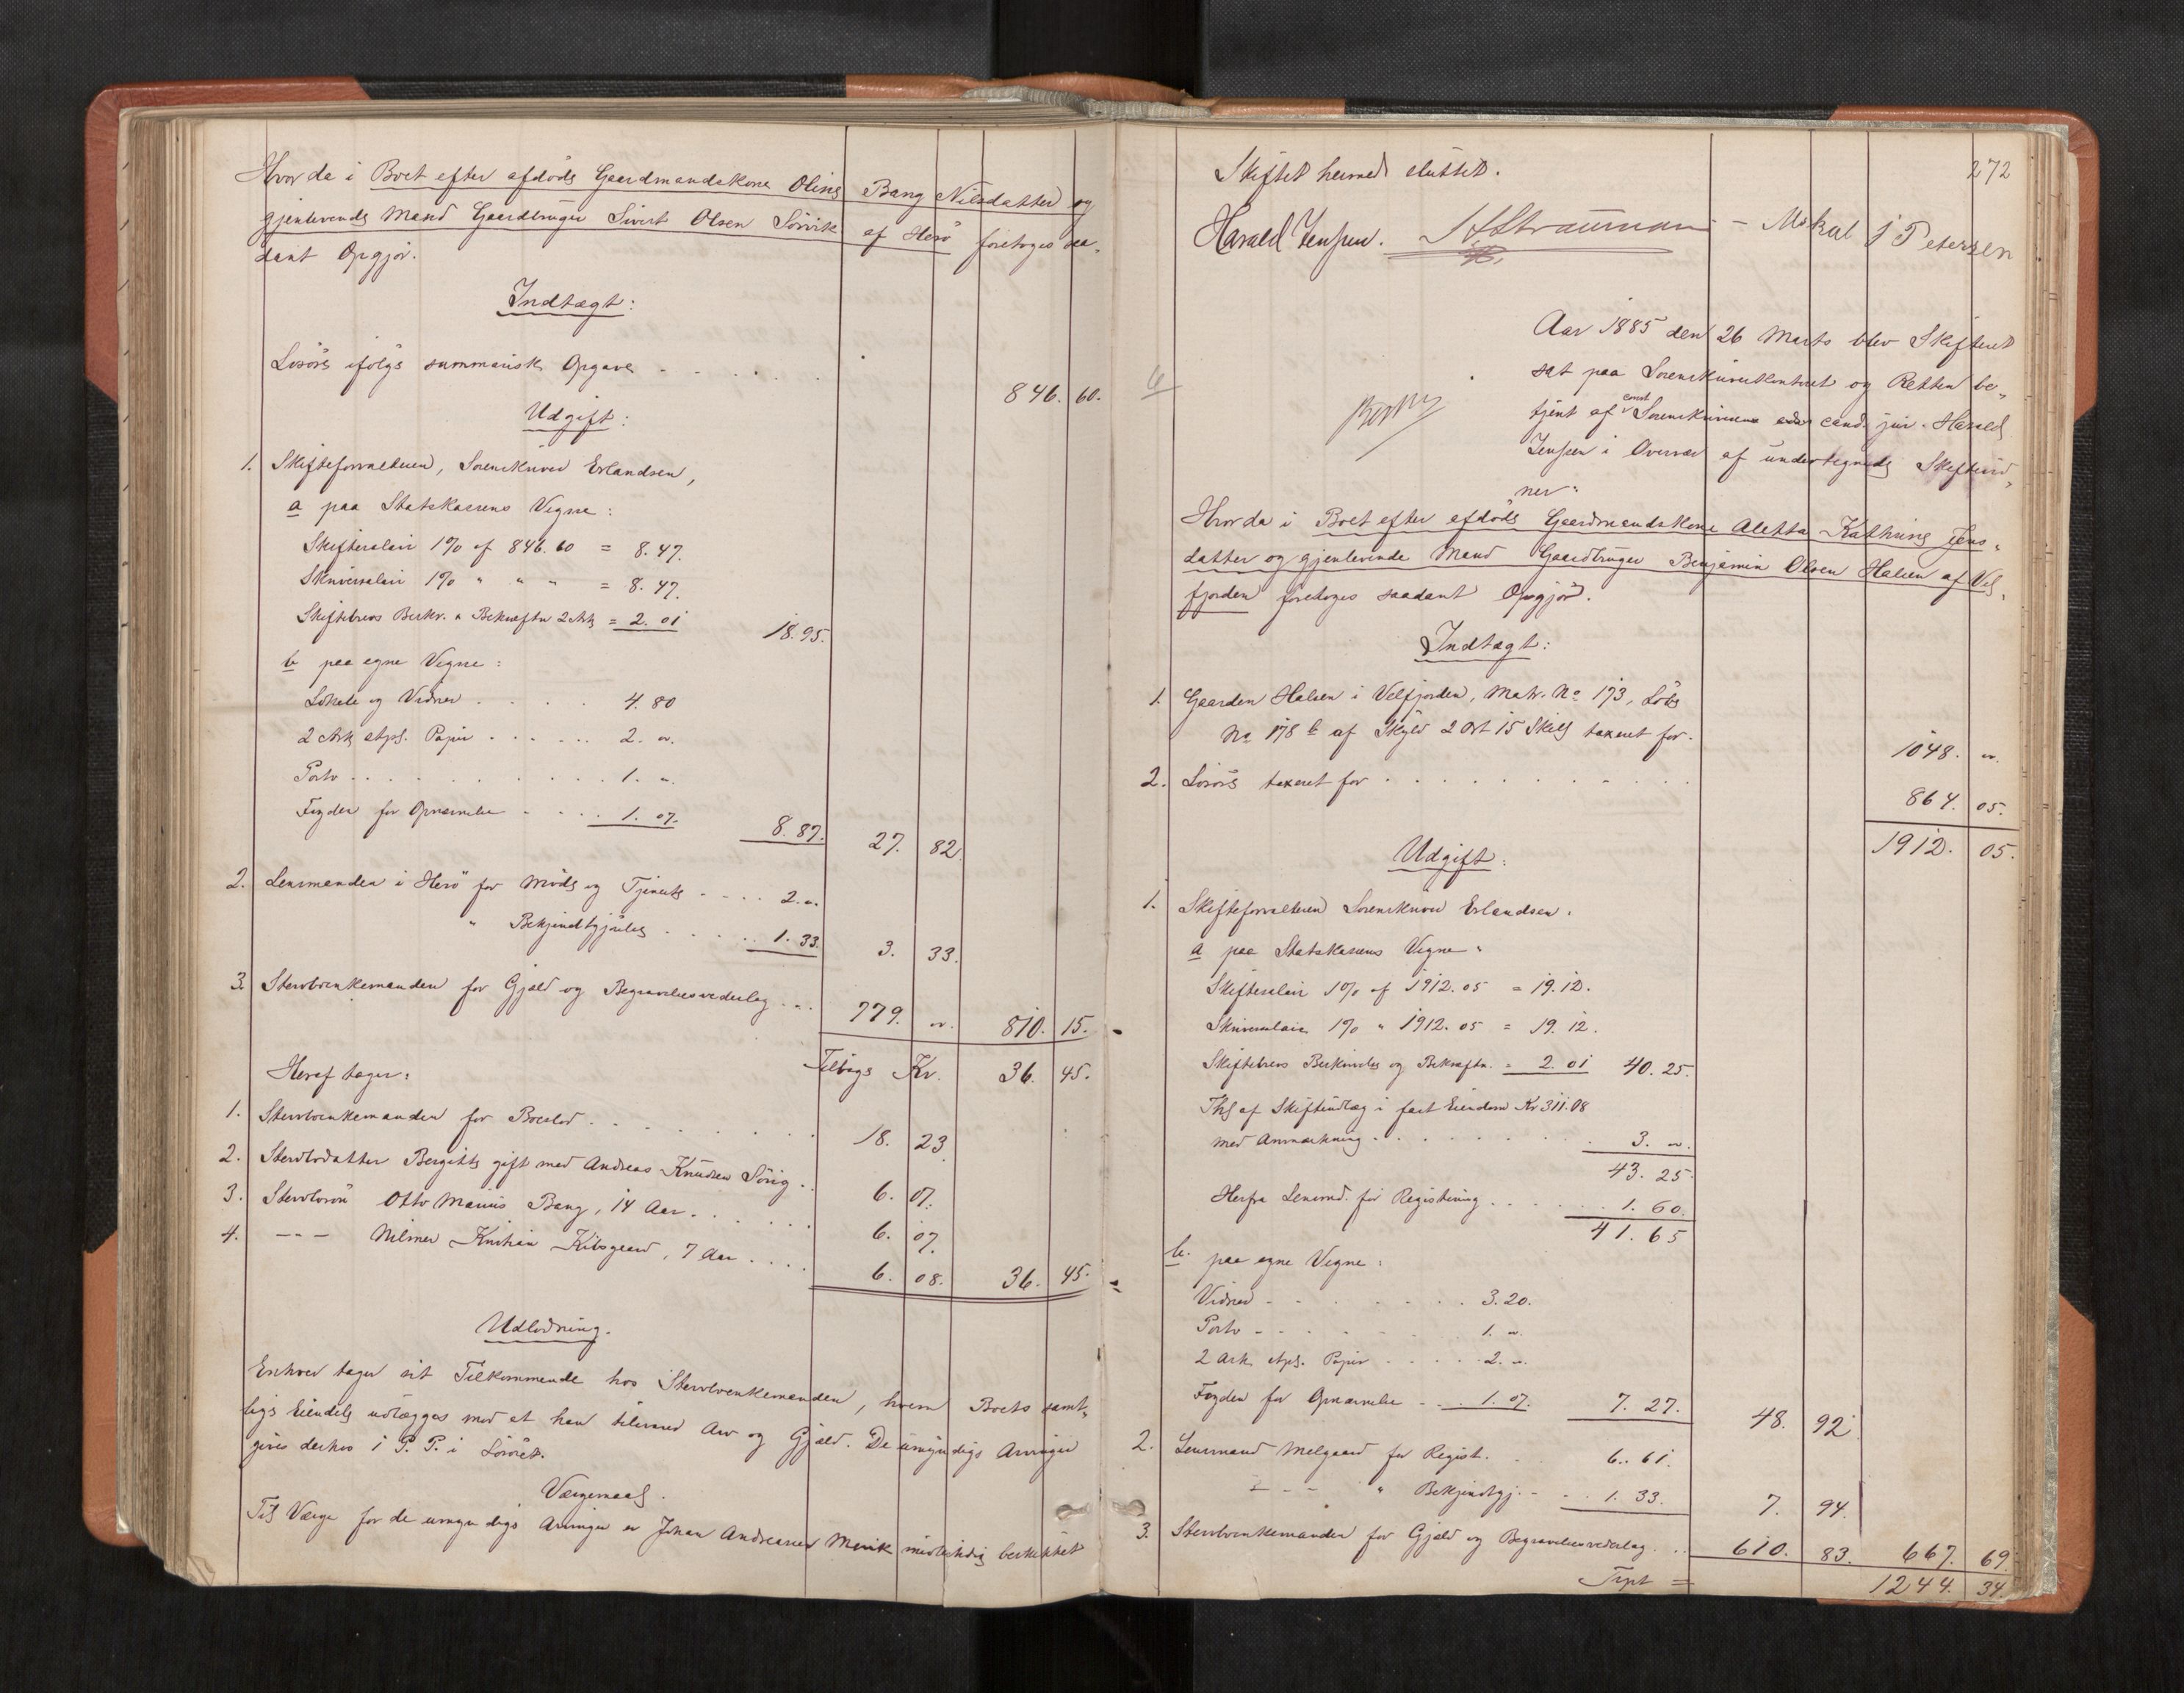 Hvorda i Boet efter afdöde Gaardmandskone Oline Bang Nilsdatter og
gjenlevende Mand Gaardbruger Sivert Olsen Sörvik af Herö foretoges saa-
dant Opgjör.
Indtægt:
Lösöre ifölge summarisk Opgave . . . . . 846. 60.
Udgift:
1. Skifteforvalteren, Sorenskriver Erlandsen,
a paa Statskassens Vegne:
Skiftesalair 1% af 846.60 = 8.47.
Skriversalair 1% " " " = 8.47.
Skiftebrevs Beskr. & Bekræftn 2 Ark = 2.01 18.95.
b paa egne Vegne:
Lokale og Vidner . . . . 4.80
2 Ark stpl. Papir . . . . . . 2. "
Porto . . . . . . . . . . 1. "
Fogden for Opnævnelse . . . . 1.07. 8.87. 27. 82.
2. Lensmanden i Herö for Möde og Tjeneste . . . . 2. "
" Bekjendtgjörelse . . . . . 1.33. 3. 33.
3. Stervboenkemanden for Gjæld og Begravelsesvederlag . . . 779. " 810. 15.
Tilbage Kr. 36. 45.
Heraf tager:
1. Stervboenkemanden for Boeslod . . . . . . . . 18. 23
2. Stervbodatter Bergitte gift med Andreas Knudsen Sörig . . 6. 07.
3. Stervbosön Otto Marius Bang, 14 Aar . . . . . . 6. 07.
4. - - - Nilmer Kristian Kilsgaard, 7 Aar . . . . 6. 08. 36. 45.
Udlodning.
Enhver tager sit Tilkommende hos Stervboenkemanden, hvem Boets samt-
lige Eiendele udlægges mod at han tilsvarer Arv og Gjæld. De umyndige Arvinger
gives derhos 1 P. P. i Lösöret.
Værgemaal.
Til Værge for de umyndige Arvinger er Johan Andreassen midlertidig beskikket
272
Skiftet hermed sluttet.
Harald Jenssen. - Mikal J Petersen
Aar 1885 den 26 Marts blev Skifteret
sat paa Sorenskriverkontoret og Retten be-
tjent af const Sorenskriveren cand. jur. Harald
Jenssen i Overvær af undertegnede Skiftevid-
ner:
Hvorda i Boet efter afdöde Gaardmandskone Aletta Kathrine Jens-
datter og gjenlevende Mand Gaardbruger Benjamin Olsen Halsen af Vel-
fjorden foretoges saadant Opgjör.
Indtægt:
1. Gaarden Halsen i Velfjorden, Matr. No 173, Löbe
No 178 b af Skyld 2 Ort 15 Skill taxeret for . 1048. "
2. Lösöre taxeret for . . . . . . . . . . 864. 05.
1912. 05.
Udgift:
1. Skifteforvalteren Sorenskriver Erlandsen:
a paa Statskassens Vegne:
Skiftesalair 1% af 1912.05 = 19.12.
Skriversalair 1% " 1912.05 = 19.12.
Skiftebrevs Beskrivelse og Bekræftn. = 2.01 40.25.
Thl af Skifteudlæg i fast Eiendom Kr 311.08
med Anmærkning . . . . . . . . 3. "
43.25
Herfra Lensmd. for Registering . . . . . . 1.60.
41.65
b. paa egne Vegne:
Vidner . . . . . . . 3.20.
Porto . . . . . . . 1. "
2 Ark stpl. Papir . . . . . 2. "
Fogden for Opnævnelse . . . 1.07. 7.27. 48. 92.
2. Lensmand Melgaard for Regist. . . 6.61.
- - - " Bekjendtgj. . . . 1.33. 7. 94.
3. Stervboenkemanden for Gjæld og Begravelsesvederlag . . 610. 83. 667. 69.
Trpt = 1244. 34.